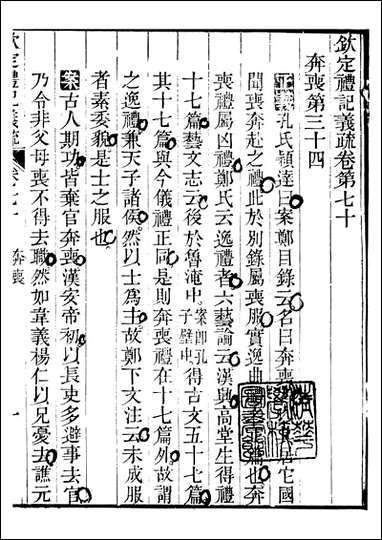 欽定禮記義疏卷第七十
奔喪第三十四
正義孔氏穎達曰案鄭目錄云名曰奔喪居它國
聞喪奔起之禮此於別錄屬喪服實逸曲篇也奔
喪禮屬凶禮鄭氏云逸禮者六藝論云漢興高堂生得禮
十七篇藝文志云後於魯淹中案即孔子壁中得古文五十七篇
其十七篇與今儀禮正同是則奔喪禮在十七篇外故謂
之逸禮兼天子諸侯然以士為主故鄭下文注云未成服
者素委貌是士之服也
案古人期功皆棄官奔喪漢安帝初以長吏多避事去官
乃令非父母喪不得去職然如韋義楊仁以兄憂去譙元
欽定禮記義疏
奔喪
一